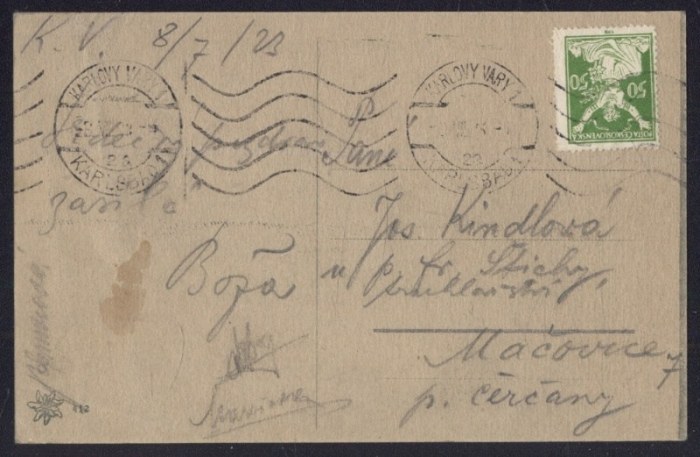 K. V. 8/7/23
KARLOVY VARY 1
2A
KARLSBAD 1
KARLOVY VARY 1
KARLSBAD 1
50 50
POŠTA ČESKOSLOVENSKÁ
Srdečný pozdrav
zasílá
Boža
Paní
Jos Kindlová
u p. Fr. Stichy
Mačovice 7
p. Čerčany